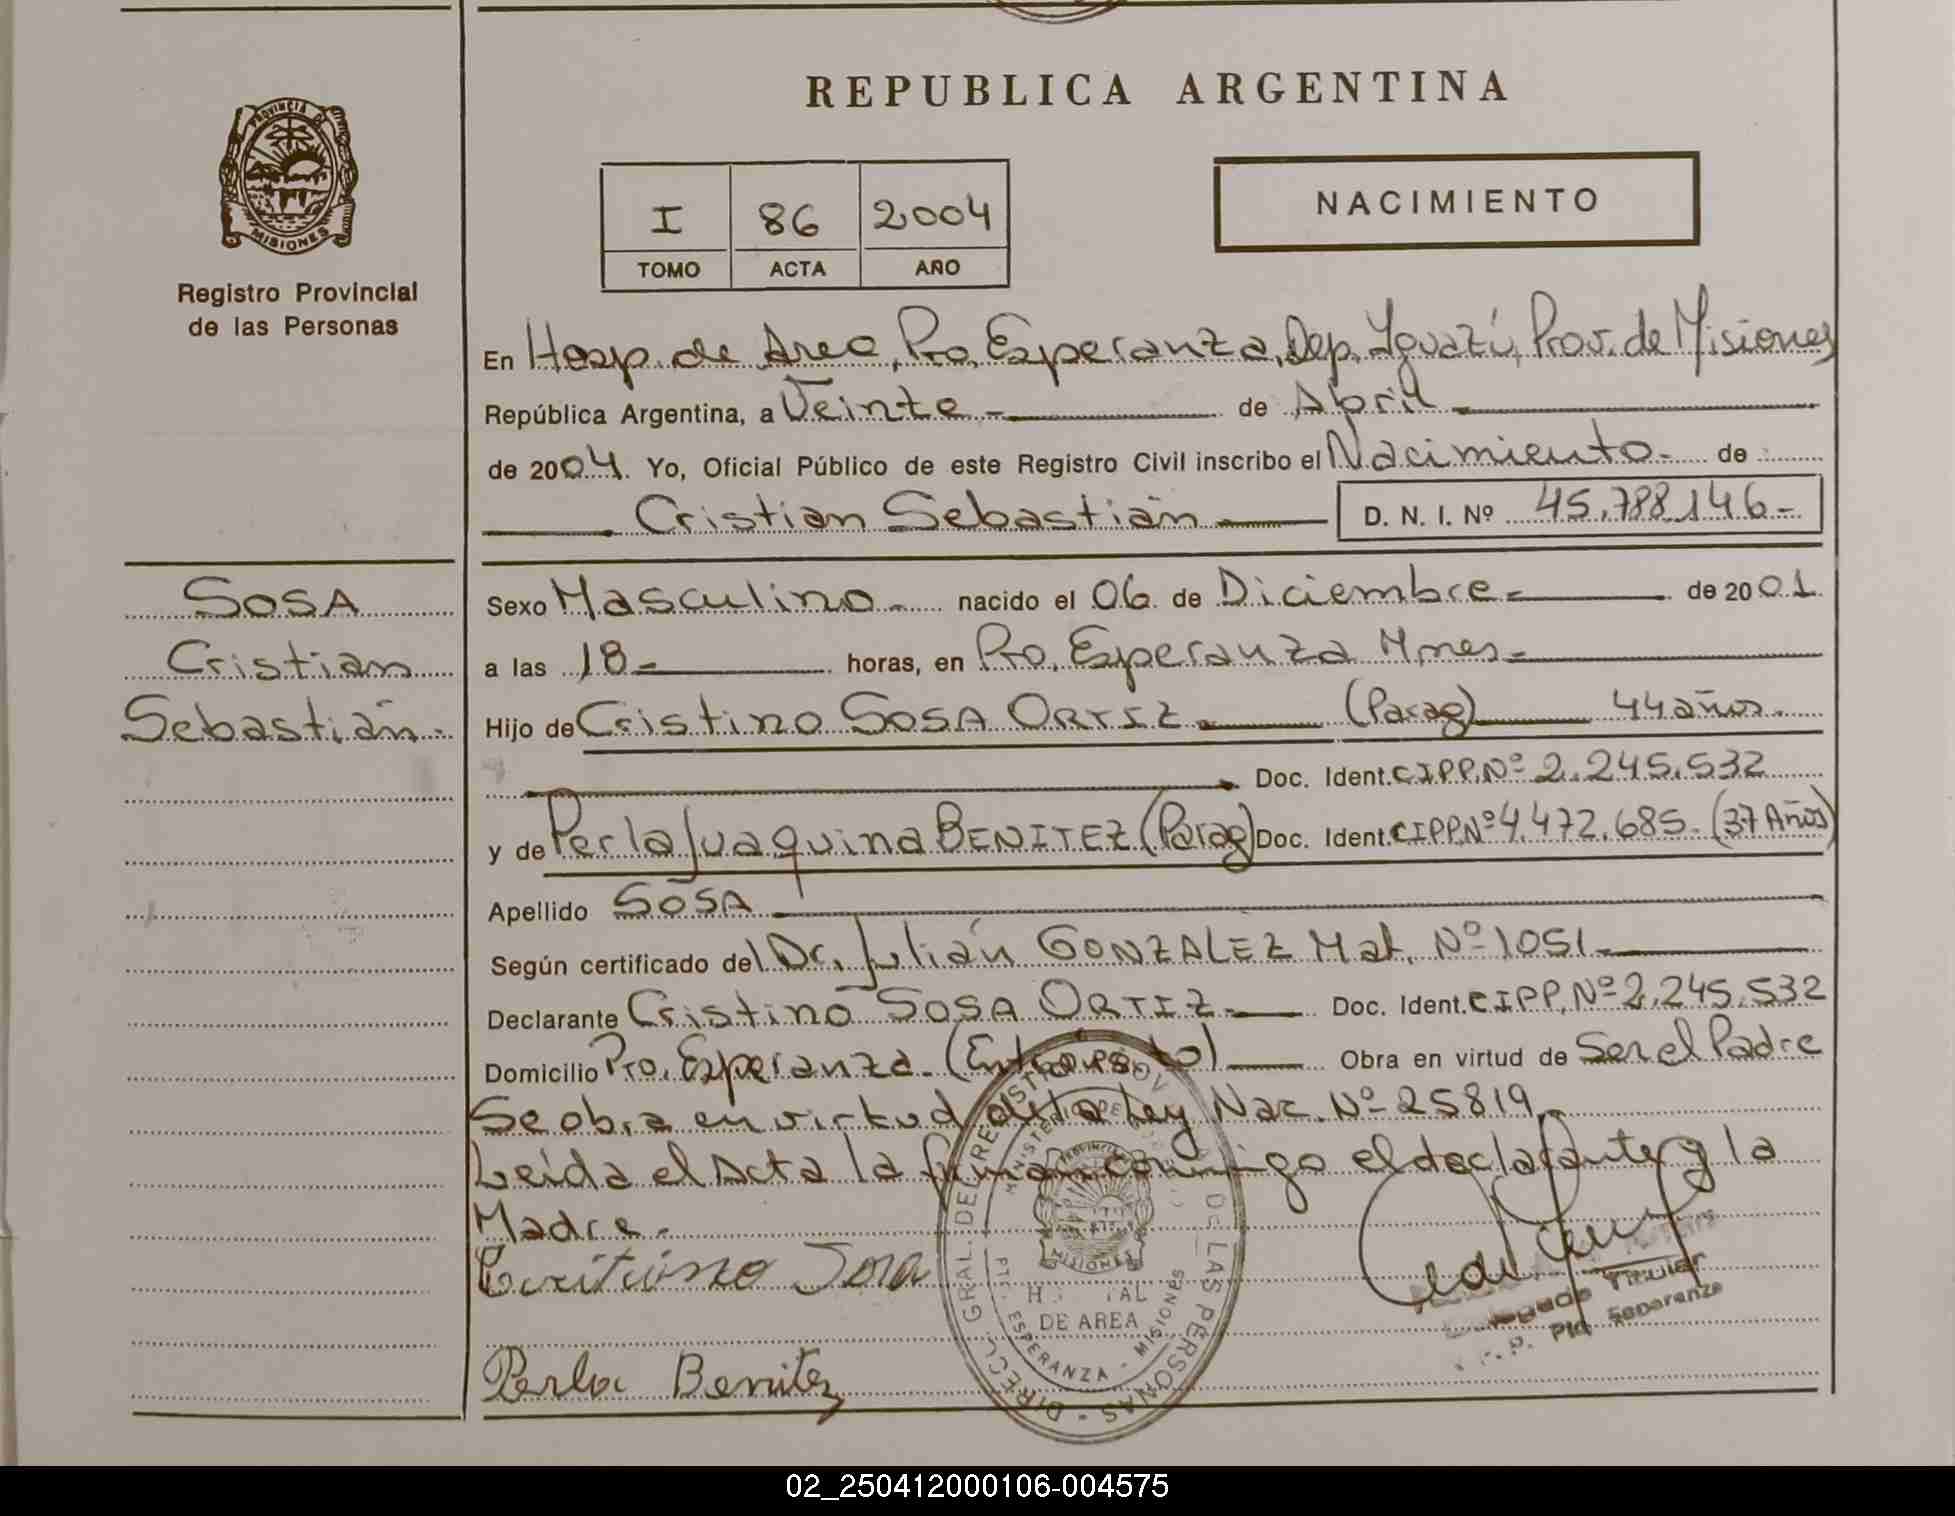 REPUBLICA ARGENTINA
PROVINCIA DE
MISIONES
Registro Provincial
de las Personas
I 86 2004
TOMO ACTA AÑO
NACIMIENTO
En Hosp. de Area, Pto. Esperanza, Dep. Iguazú, Prov. de Misiones
República Argentina, a Veinte de Abril
de 2004. Yo, Oficial Público de este Registro Civil inscribo el Nacimiento de
Cristian Sebastián D. N. I. Nº 45.788.146
SOSA
Cristian
Sebastián
Sexo Masculino nacido el 06 de Diciembre de 2001
a las 18 horas, en Pto. Esperanza Mnes
Hijo de Cristino SOSA ORTIZ (Parag) 44 años.
Doc. Ident. C.I.P.P. Nº 2.245.532
y de Perla Juaquina BENITEZ (Parag) Doc. Ident. CIPP Nº 4.472.685. (37 Años)
Apellido SOSA
Según certificado del Dr. Julián GONZALEZ Mat. Nº 1051
Declarante Cristino SOSA ORTIZ Doc. Ident. C.I.P.P. Nº 2.245.532
Domicilio Pto. Esperanza. Obra en virtud de Ser el Padre
Se obra en virtud de la Ley Nac. Nº 25819
Leída el Acta la firman conmigo el declarante y la
Madre.
Cristino Sosa
Perla Benitez
DE AREA
ESPERANZA - MISIONES
DE LAS PERSONAS
Titular
Pto. Esperanza
02_250412000106-004575